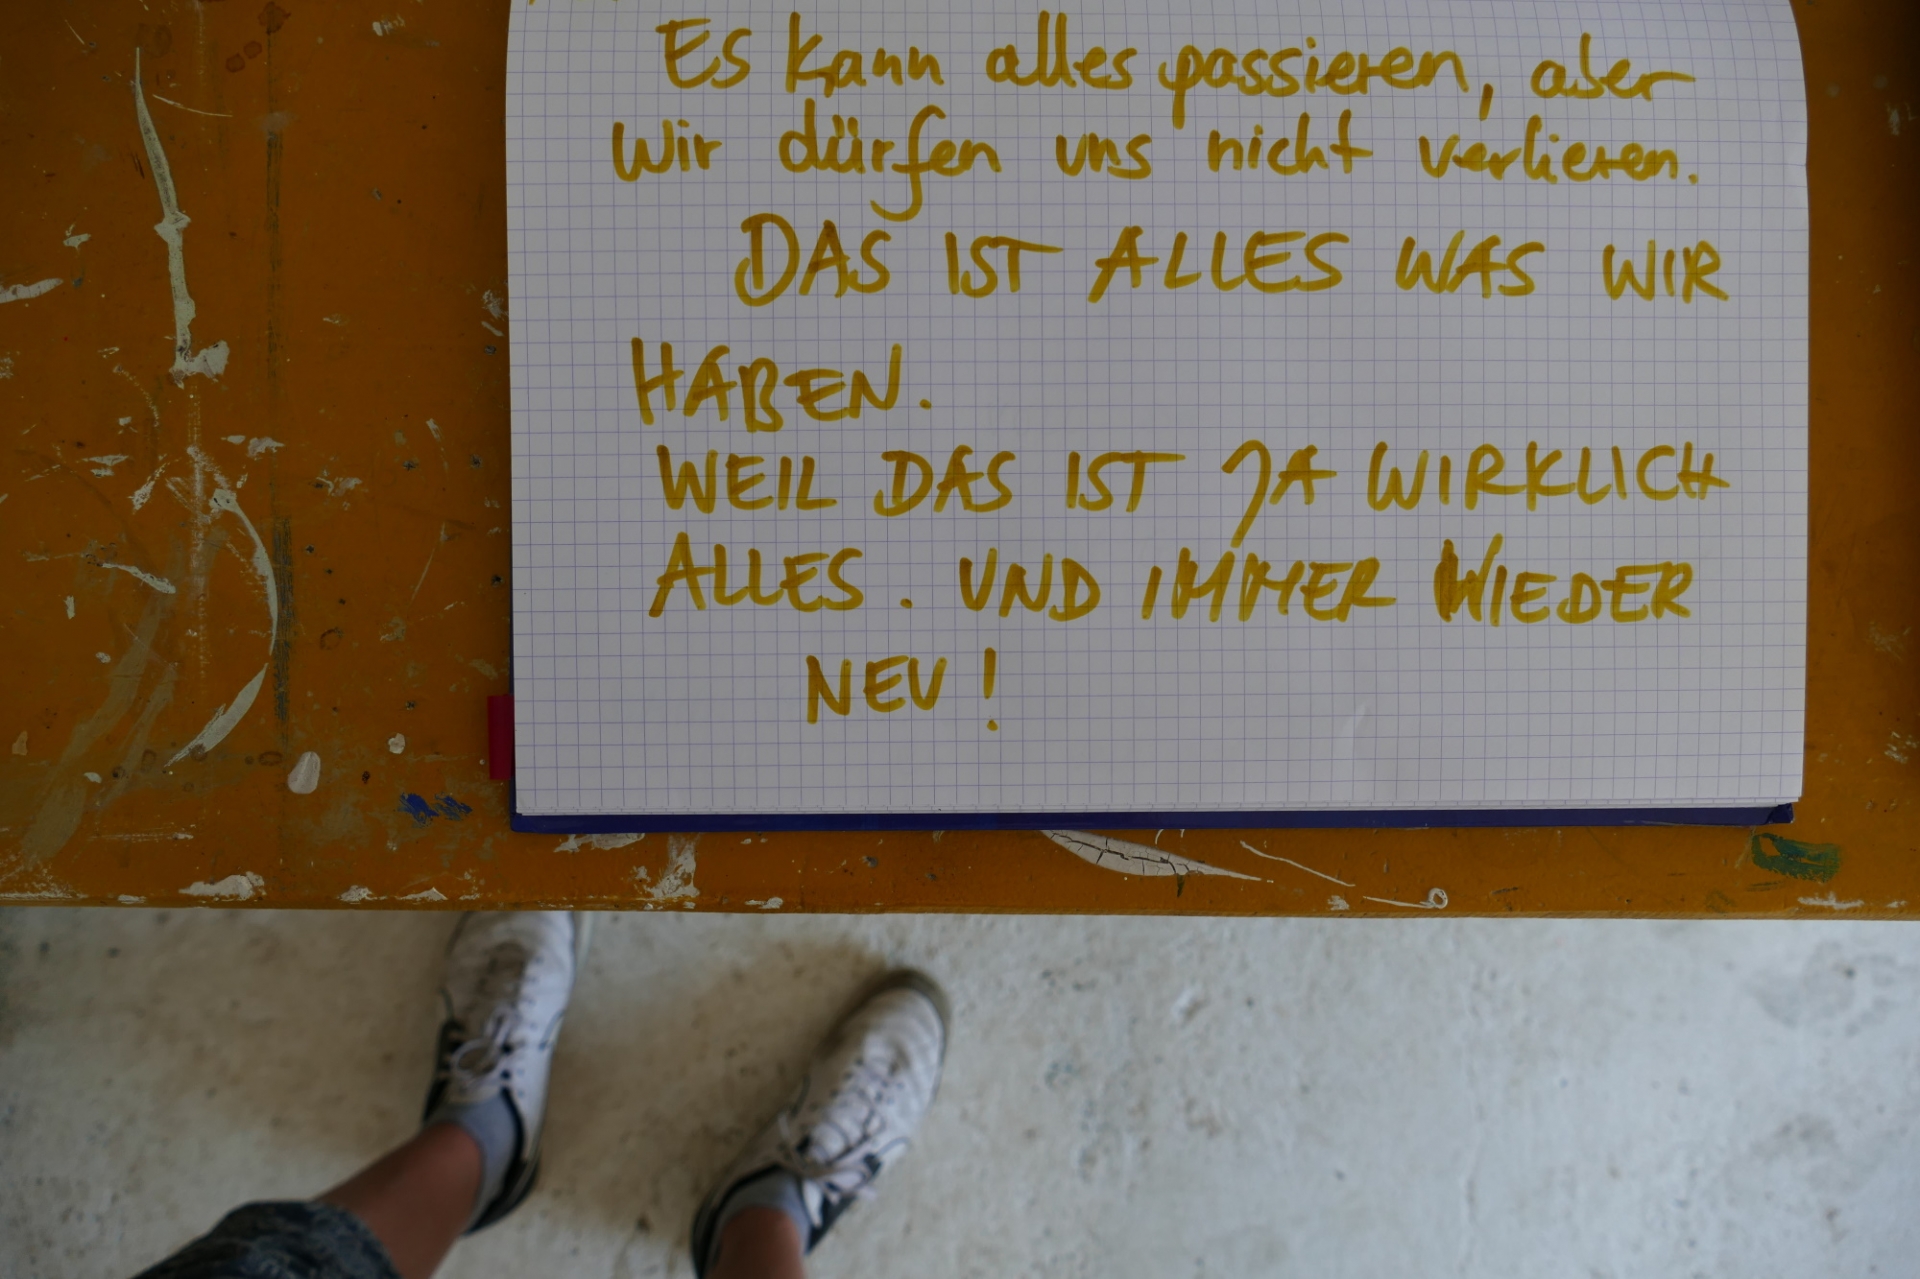 Es kann alles passieren, aber
wir dürfen uns nicht verlieren.
DAS IST ALLES WAS WIR
HABEN.
WEIL DAS IST JA WIRKLICH
ALLES. UND IMMER WIEDER
NEU!